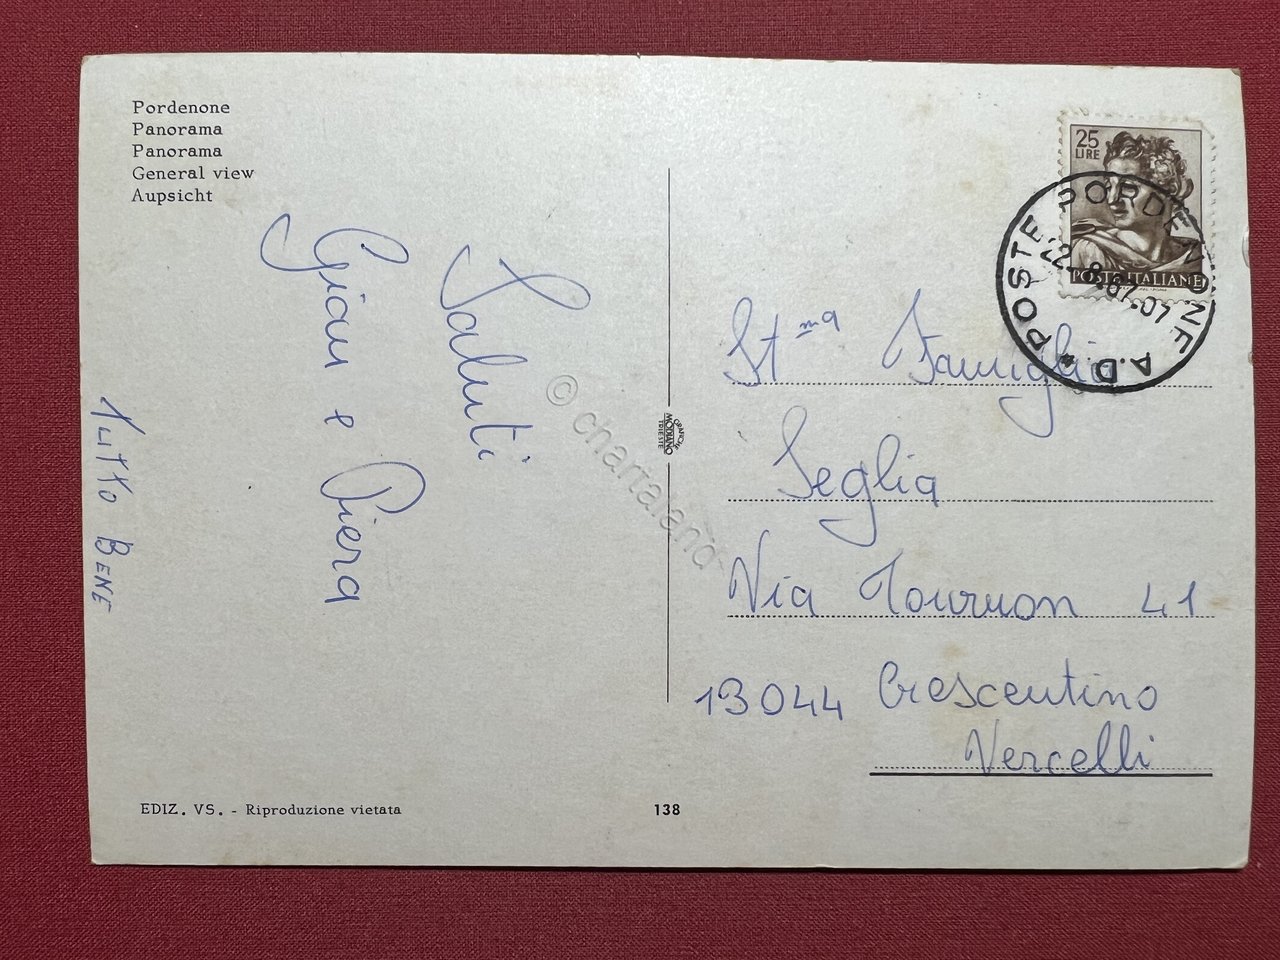 Pordenone
Panorama
Panorama
General view
Aupsicht
Saluti
Gian e Piera
TUTTO BENE
25
LIRE
POSTE ITALIANE
POSTE PORDENONE A.D. *
22.8.67.07
GRAFICHE
MODIANO
TRIESTE
© chartaland
St ma Famiglia
Seglia
Via Tournon 41
13044 Crescentino
Vercelli
EDIZ. VS. - Riproduzione vietata
138